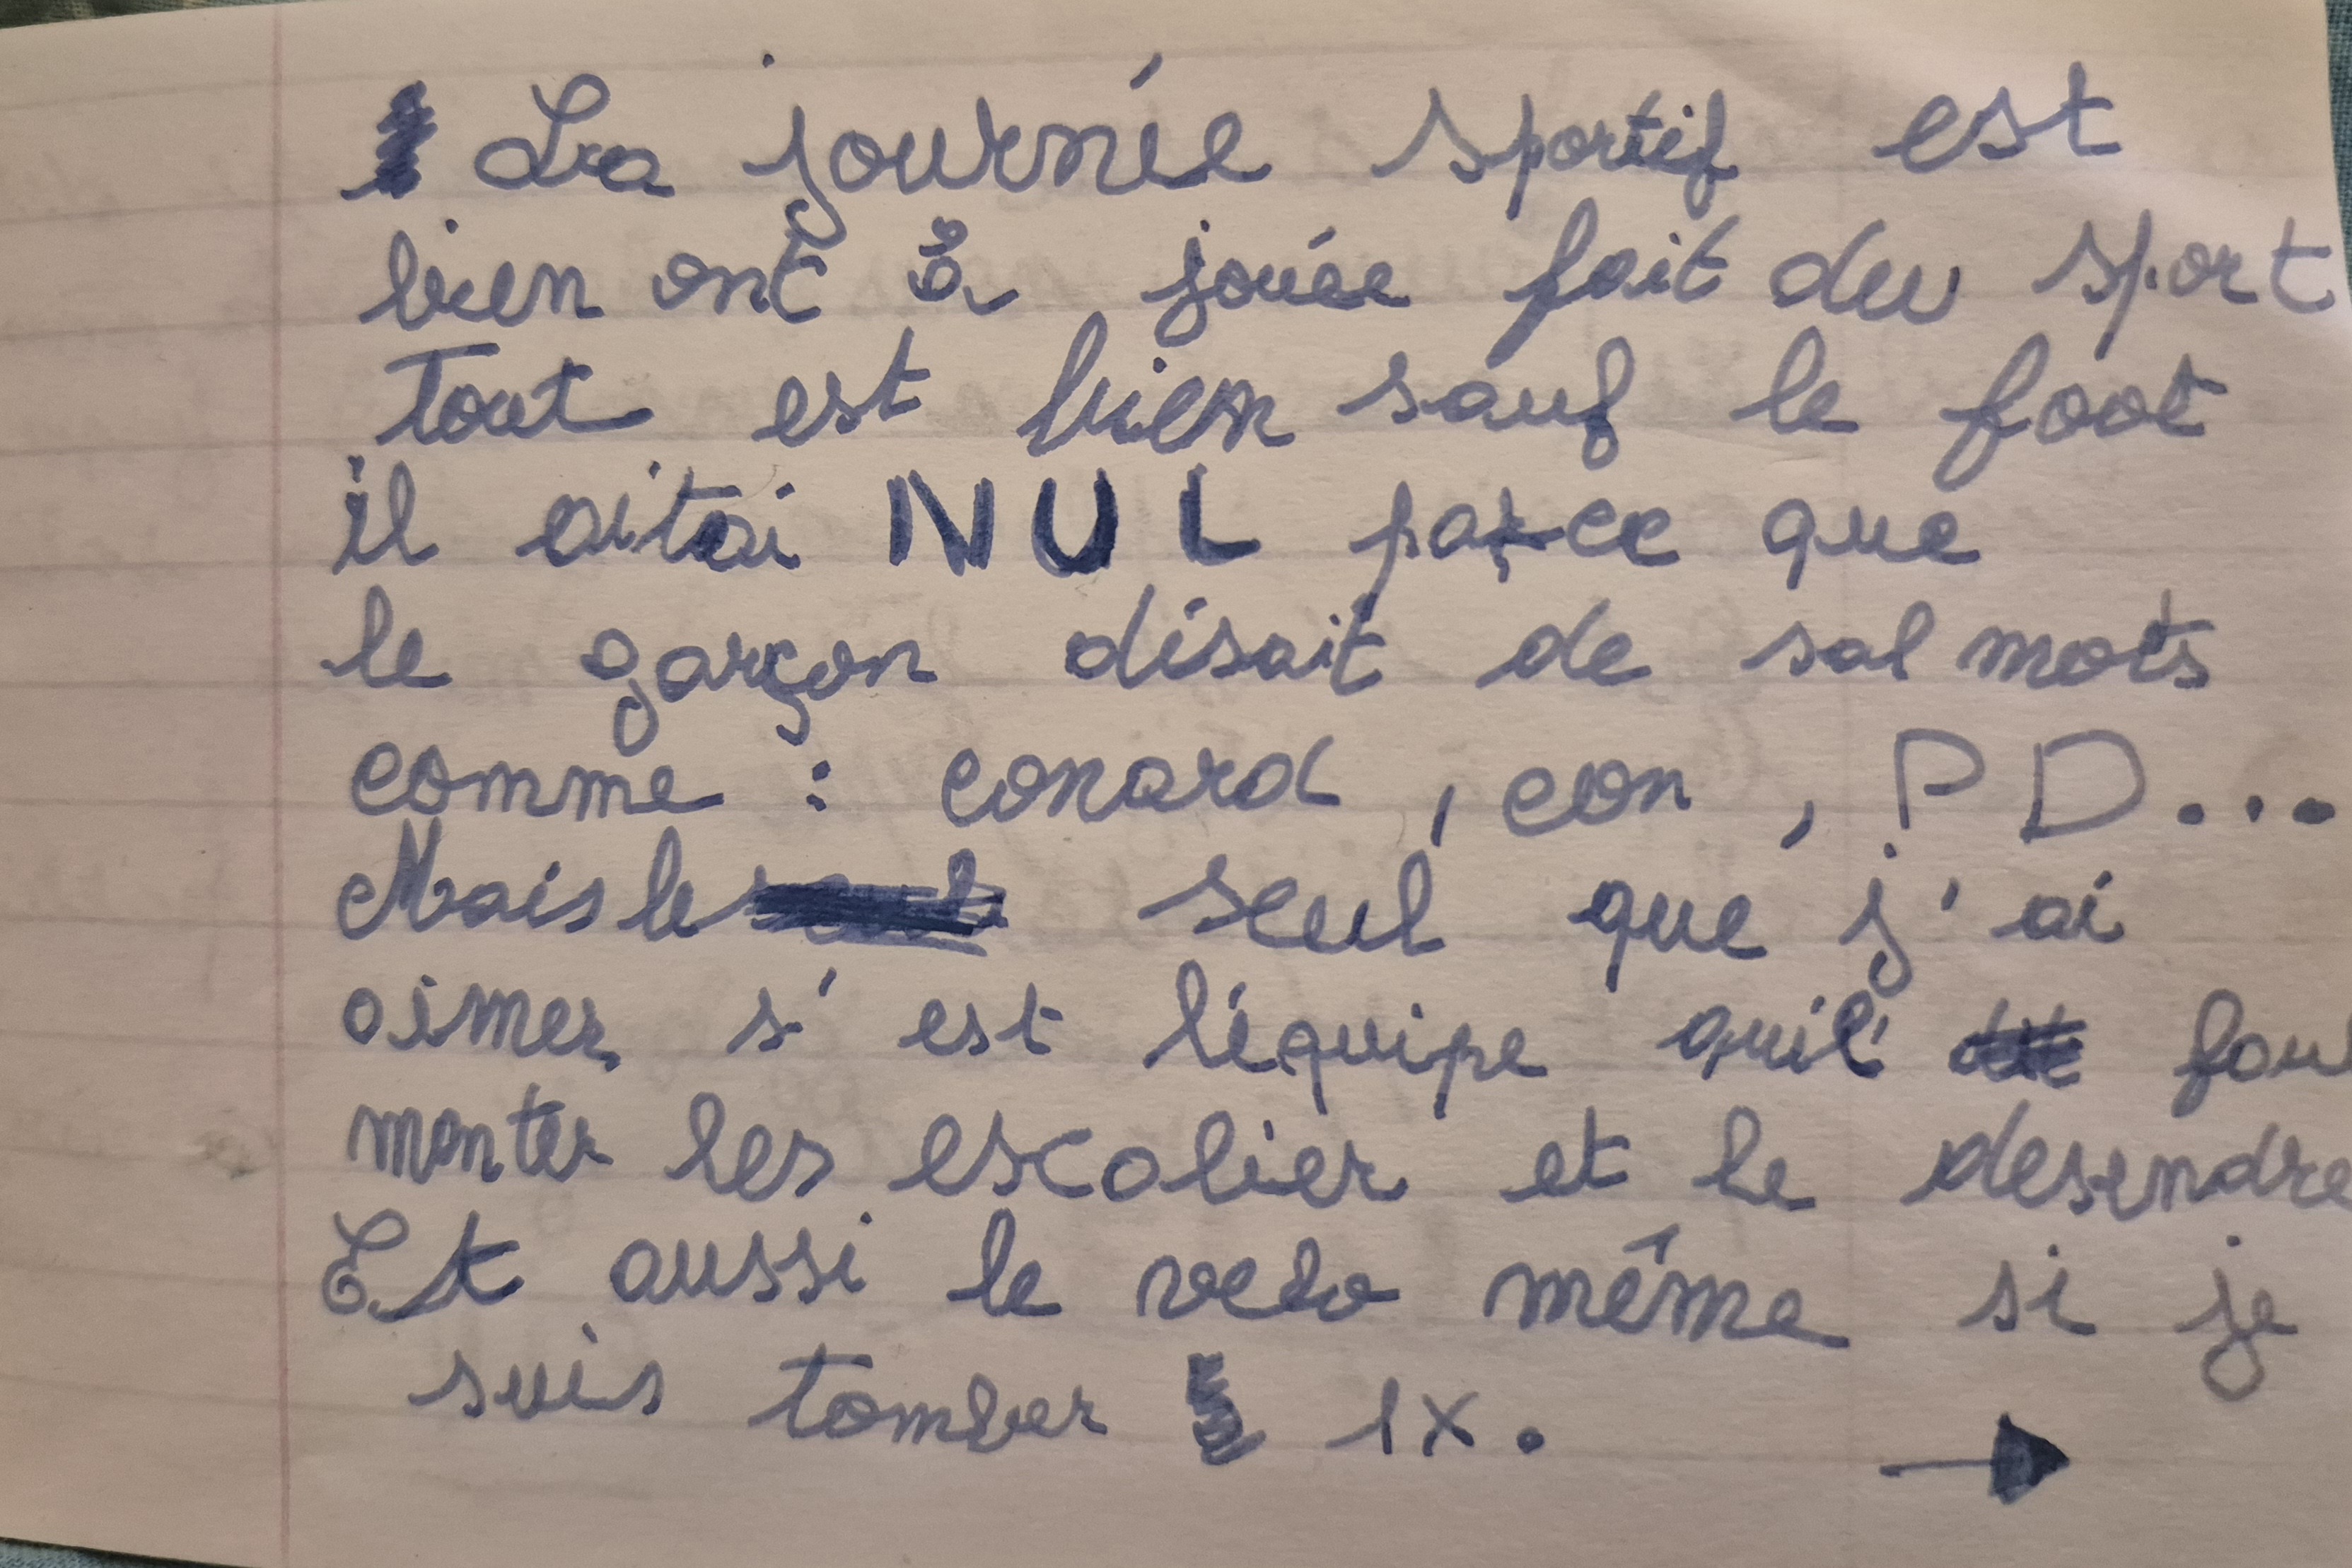 La journée sportif est
bien ont à jouée fait du sport
Tout est bien sauf le foot
il aitai NUL parce que
le garçon disait de sal mots
comme : conard, con, PD...
Mais le seul que j'ai
aimer s'est l'équipe quil fou
monter les escalier et le desendre
Et aussi le velo même si je
suis tomber 1x.